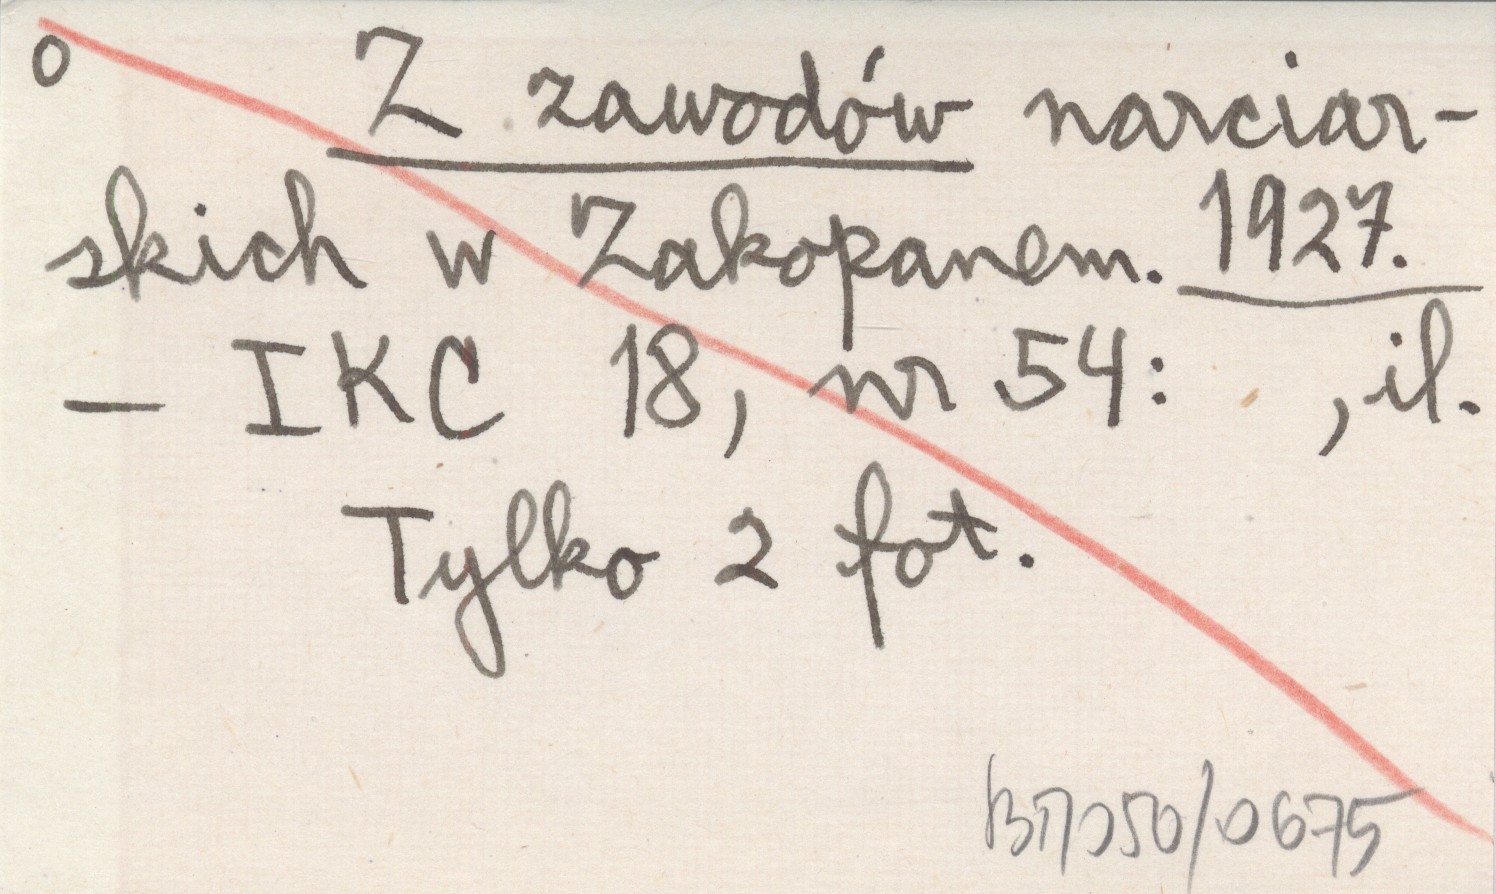 o Z zawodów narciar-
skich w Zakopanem. 1927.
— IKC 18, nr 54: , il.
Tylko 2 fot.